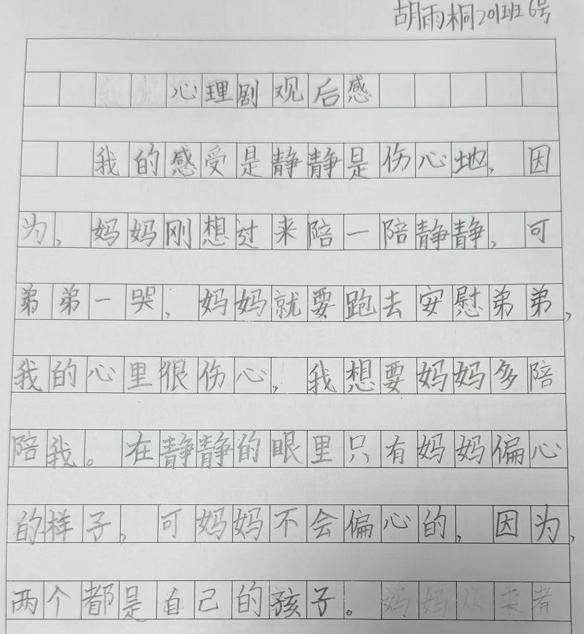 胡雨桐201班6号
心理剧观后感
我的感受是静静是伤心地,因
为,妈妈刚想过来陪一陪静静,可
弟弟一哭,妈妈就要跑去安慰弟弟,
我的心里很伤心,我想要妈妈多陪
陪我。在静静的眼里只有妈妈偏心
的样子,可妈妈不会偏心的,因为,
两个都是自己的孩子。